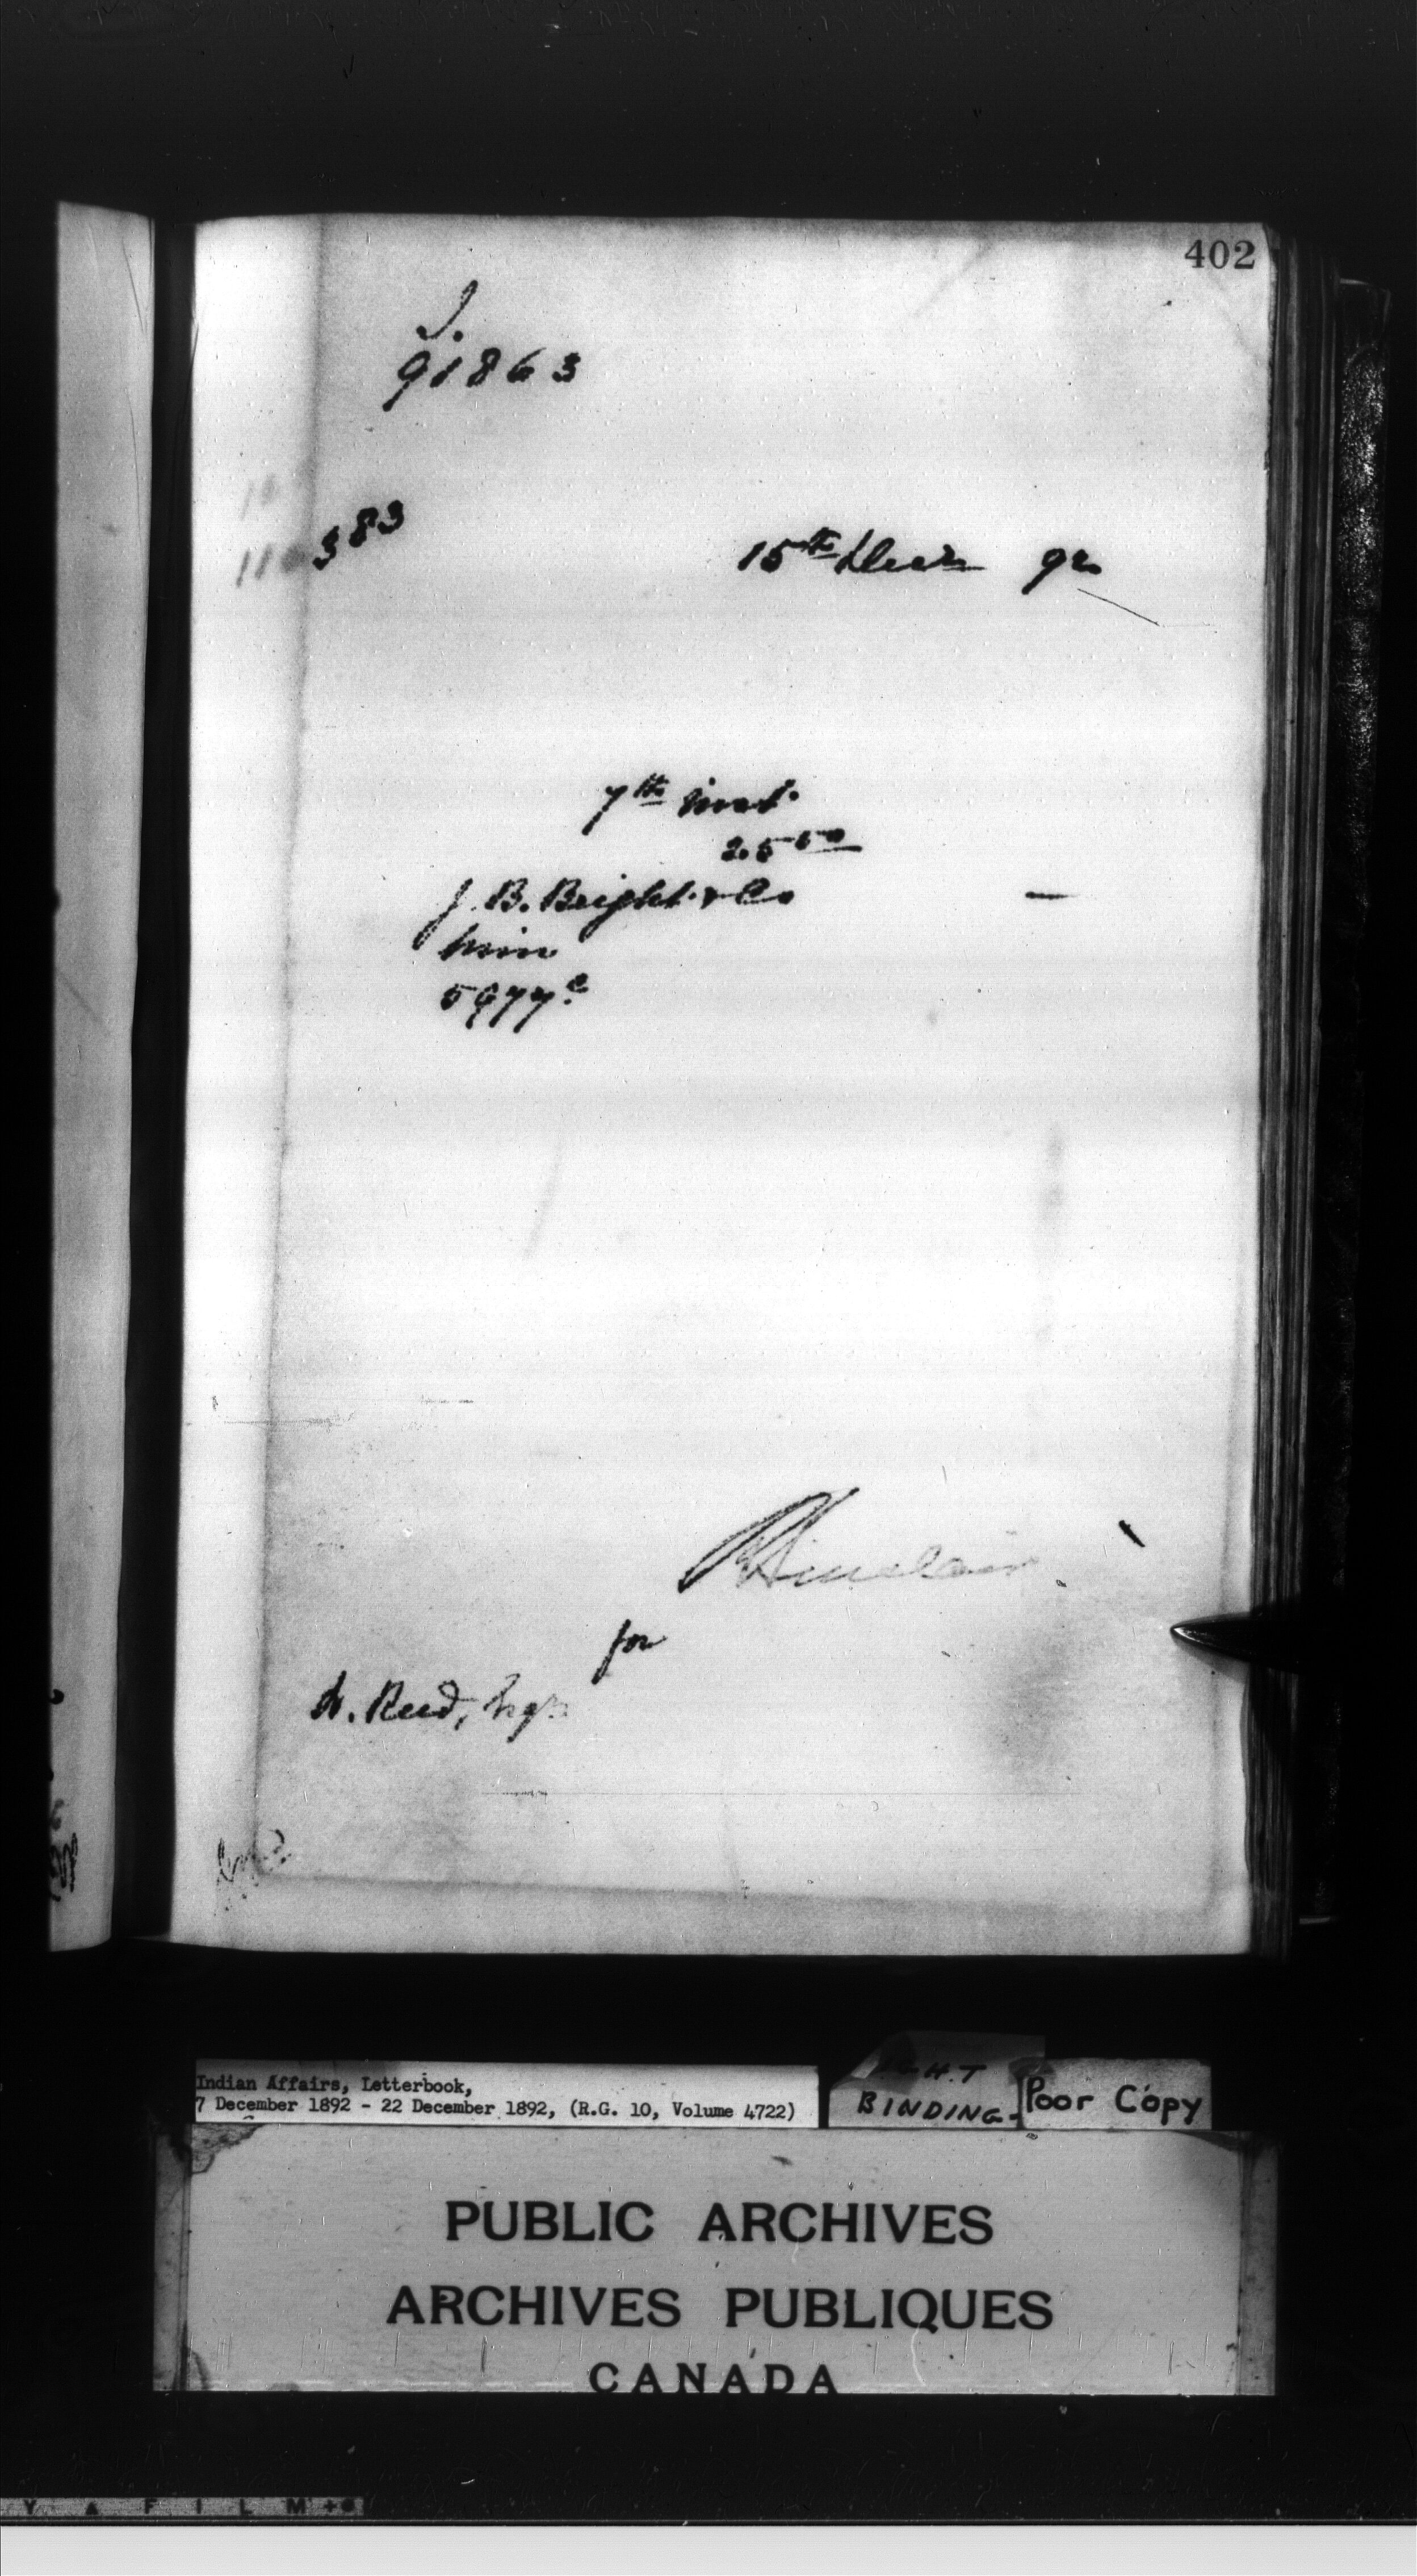 402
J.
91863
383
15th Decr 92
7th inst.
25 50
J. B. Bright & Co
Win
5977 c
Sinclair
for
H. Reed, Esq.
Indian Affairs, Letterbook,
7 December 1892 - 22 December 1892, (R.G. 10, Volume 4722)
BINDING-
Poor Copy
PUBLIC ARCHIVES
ARCHIVES PUBLIQUES
CANADA